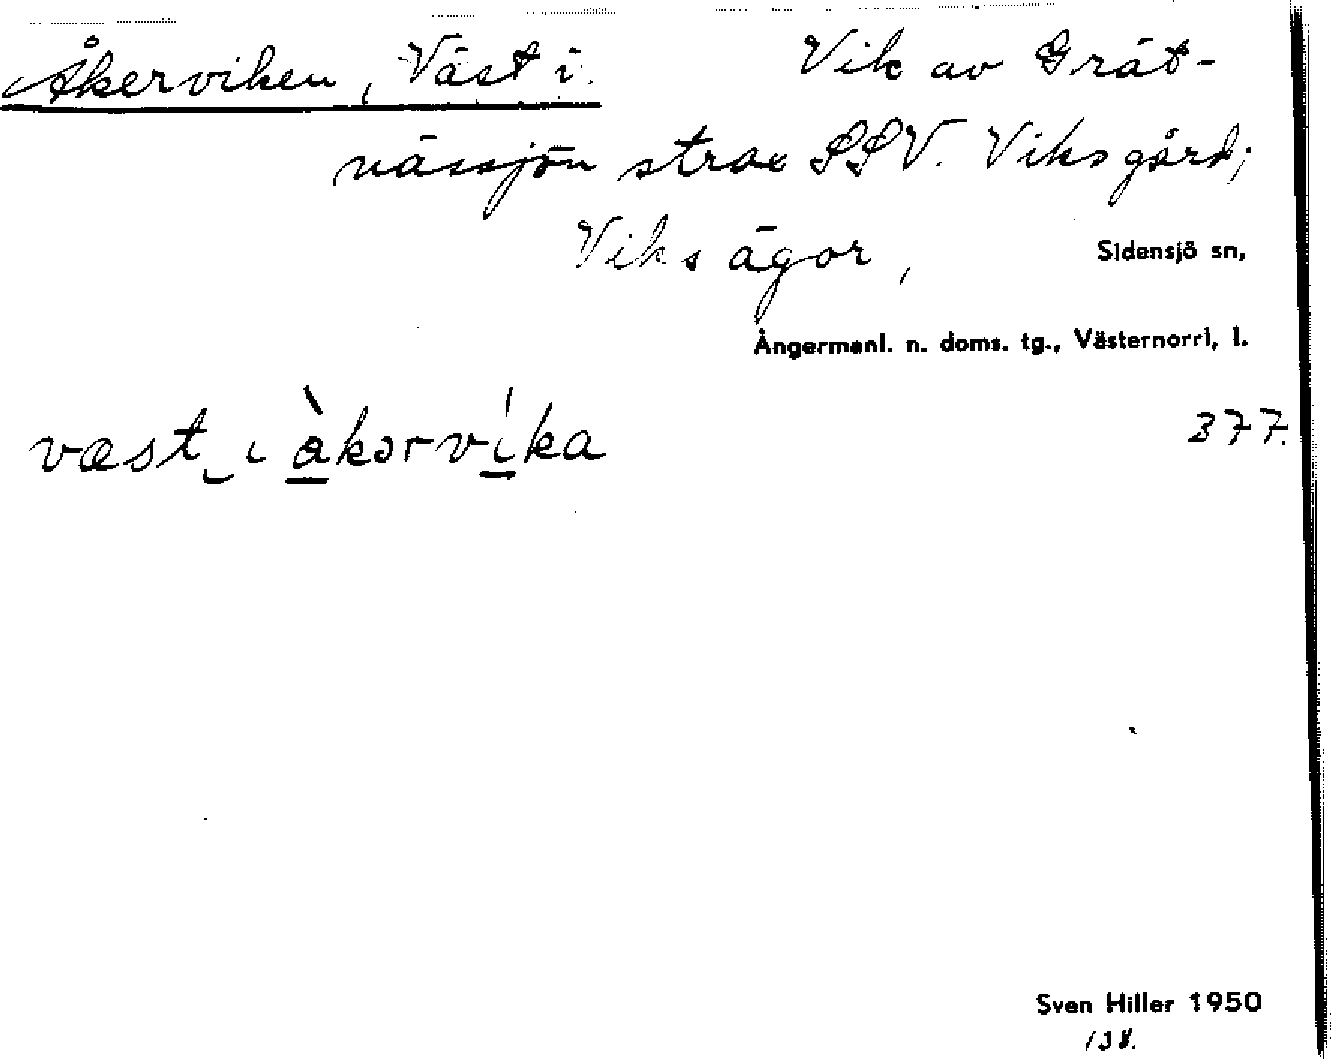 Åkerviken, Väst i. Vik av Grät-
nässjön strax SSV. Viks gård;
Viks ägor, Sidensjö sn,
Ångermanl. n. doms. tg., Västernorrl. l.
væst‿ɩ àkərvíka 377.
Sven Hiller 1950